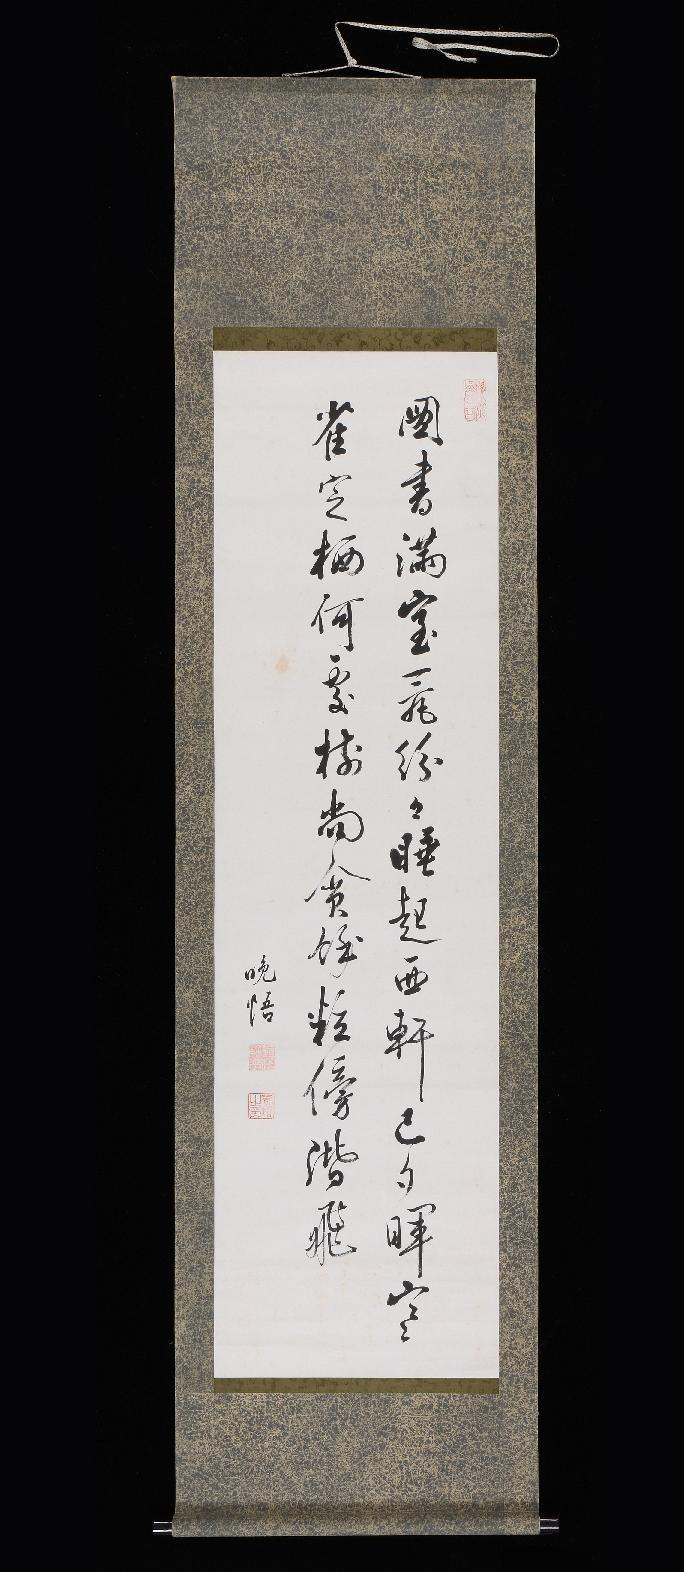 圖書滿室紛々睡起西軒已夕暉寒
雀定栖何處樹尚貪餘粒傍階飛
晚悟